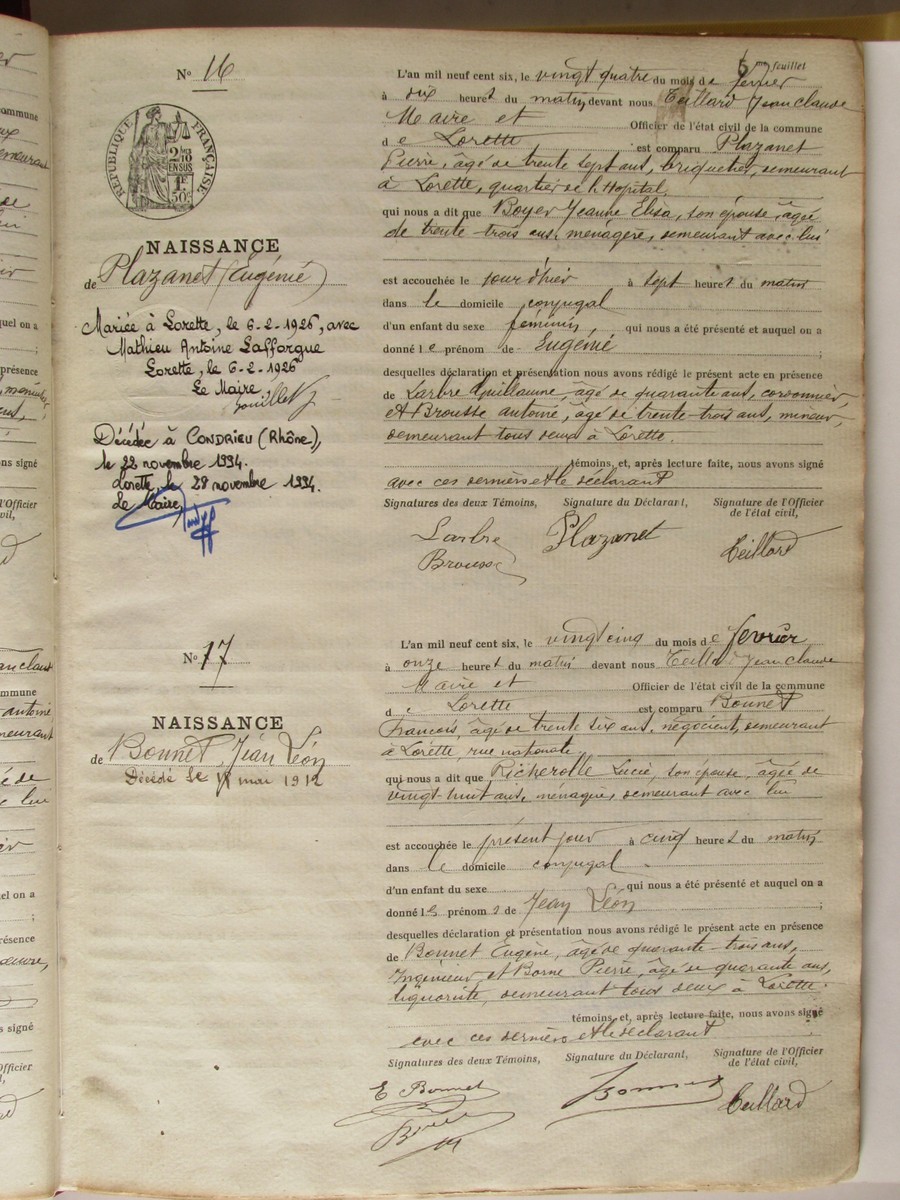 6 me feuillet
N° 16
RÉPUBLIQUE FRANÇAISE
2/10 EN SUS
1F 50c
NAISSANCE
de Plazanet (Eugénie)
Mariée à Lorette, le 6-2-1926, avec
Mathieu Antoine Lafforgue
Lorette, le 6-2-1926
Le Maire,
Décédée à CONDRIEU (Rhône),
le 22 novembre 1994.
Lorette, le 28 novembre 1994.
Le Maire,
L'an mil neuf cent six, le vingt quatre du mois de fevrier
à dix heures du matin, devant nous Teillard Jean Claude
Maire et Officier de l'état civil de la commune
de Lorette est comparu Plazanet
Pierre, âgé de trente sept ans, briquetier, demeurant
à Lorette, quartier de l'Hopital,
qui nous a dit que Boyer Jeanne Elisa, son épouse, âgée
de trente-trois ans, ménagère, demeurant avec lui
est accouchée le jour d'hier à sept heures du matin
dans le domicile conjugal
d'un enfant du sexe féminin, qui nous a été présenté et auquel on a
donné le prénom de Eugénie ;
desquelles déclaration et présentation nous avons rédigé le présent acte en présence
de Larbre Guillaume, âgé de quarante ans, cordonnier,
et Brousse antoine, âgé de trente-trois ans, mineur,
demeurant tous deux à Lorette.
témoins, et, après lecture faite, nous avons signé
avec ces derniers et le déclarant
Signatures des deux Témoins, Signature du Déclarant, Signature de l'Officier
de l'état civil,
Larbre Plazanet Teillard
Brousse
N° 17
NAISSANCE
de Bonnet, Jean Léon
Décédé le mai 1912
L'an mil neuf cent six, le vingt cinq du mois de fevrier
à onze heures du matin devant nous Teillard Jean Claude
Maire et Officier de l'état civil de la commune
de Lorette est comparu Bonnet
François, âgé de trente six ans, négocient, demeurant
à Lorette, rue nationale
qui nous a dit que Richerolle Lucie, son épouse, âgée de
vingt-huit ans, ménagère, demeurant avec lui
est accouchée le présent jour à cinq heures du matin
dans le domicile conjugal
d'un enfant du sexe qui nous a été présenté et auquel on a
donné les prénoms de Jean Léon ;
desquelles déclaration et présentation nous avons rédigé le présent acte en présence
de Bonnet Eugène, âgé de quarante-trois ans,
Ingénieur, et Borne Pierre, âgé de quarante ans,
liquoriste, demeurant tous deux à Lorette.
témoins, et, après lecture faite, nous avons signé
avec ces derniers et le déclarant
Signatures des deux Témoins, Signature du Déclarant, Signature de l'Officier
de l'état civil,
E Bonnet Bonnet Teillard